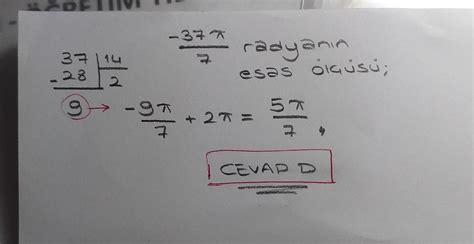 ÖĞRETİM
-37π/7 radyanın
esas ölçüsü;
37 | 14
-28 | 2
9 → -9π/7 + 2π = 5π/7,
CEVAP D